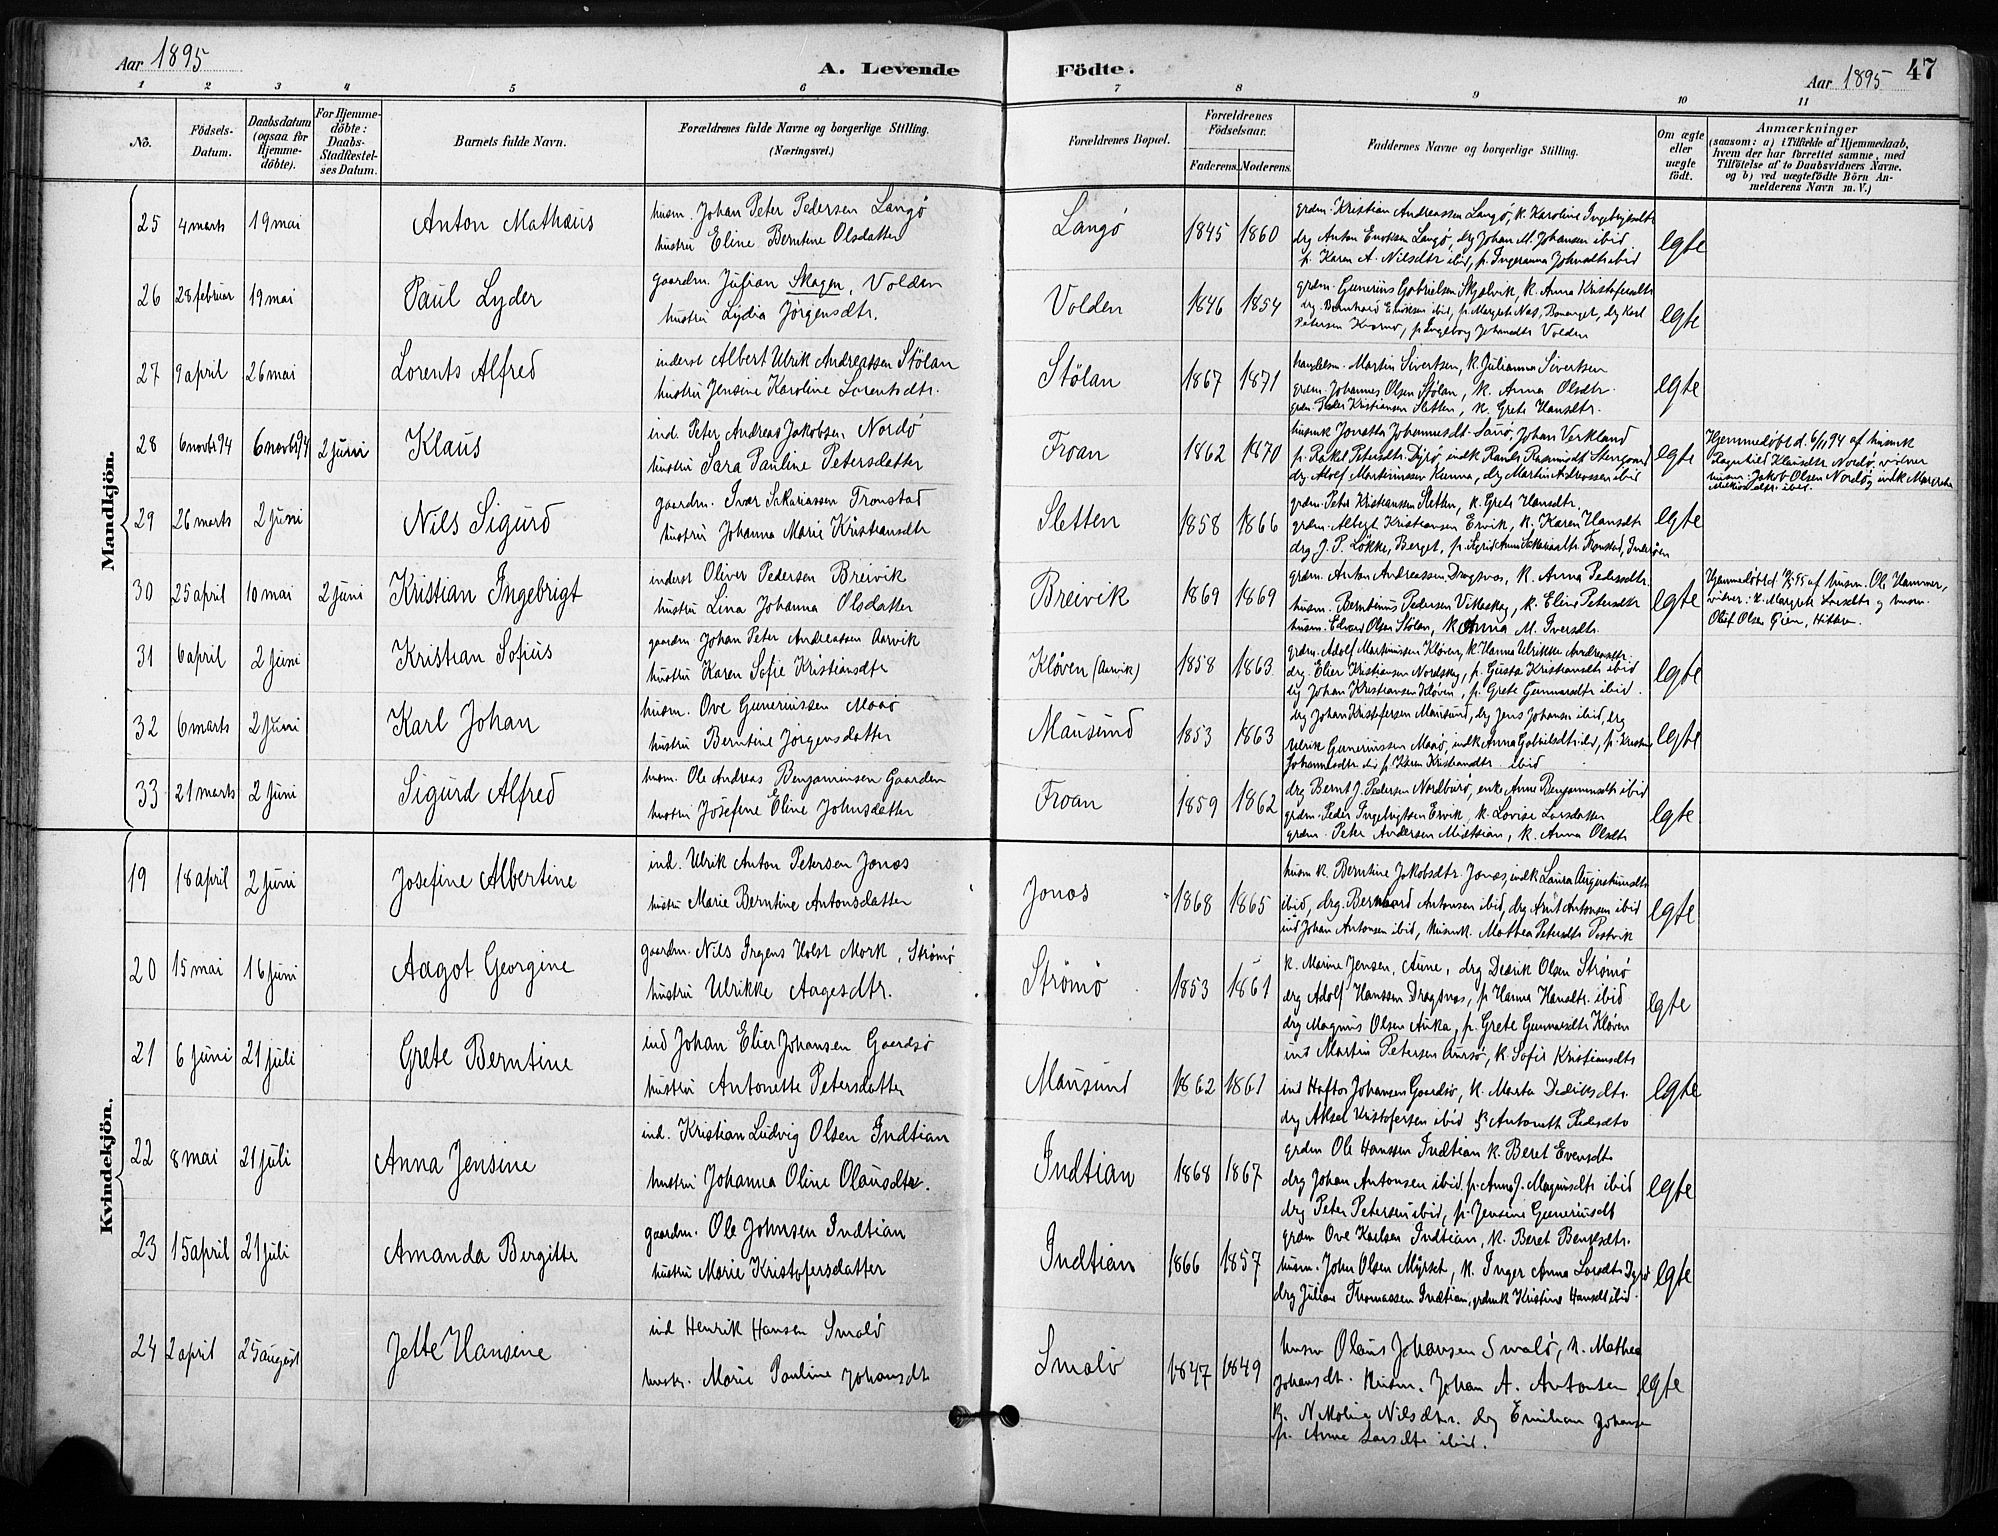 Aar 1895
A. Levende Födte.
Aar 1895
47
1 2 3 4 5 6 7 8 9 10 11
No.
Födsels-Datum.
Daabsdatum (ogsaa for Hjemme-döbte).
For Hjemme-döbte: Daabs-Stadfæstel-ses Datum.
Barnets fulde Navn.
Forældrenes fulde Navne og borgerlige Stilling. (Næringsvei.)
Forældrenes Bopæl.
Forældrenes Födselsaar.
Faderens. Moderens.
Faddernes Navne og borgerlige Stilling.
Om ægte eller uægte födt.
Anmærkninger
(saasom: a) i Tilfælde af Hjemmedaab, hvem der har forrettet samme, med Tilföielse af to Daabsvidners Navne. og b) ved uægtefödte Börn An-melderens Navn m. V.)
Mandkjön.
25 4 marts 19 mai Anton Mathæus
husm. Johan Peter Pedersen Langö
hustru Eline Berntine Olsdatter
Langö 1845 1860
grdm. Kristian Andreassen Langö, k. Karoline
drg Anton Langö, drg Johan M. Johansen ibid
p. Karen A. Nilsdtr ibid, p. Ingeranna Johnsdtr ibid
egte
26 28 februar 19 mai Paul Lyder
gaardm. Julian Skagen, Volden
hustru Lydia Jörgensdtr.
Volden 1846 1854
grdm. Gunerius Gabrielsen Skjælvik, k. Anna Kristofersdtr
drg. Bernhard ibid, p. Margrete Næs, drg Karl
Petersen p. Ingeborg Johansdtr Volden
egte
27 9 april 26 mai Lorents Alfred
inderst Albert Ulrik Andreassen Stölan
hustru Jensine Karoline Lorentsdtr.
Stölan 1867 1871
handelsm. Martin Sivertsen, k. Julianna Sivertsen
grdm. Johannes Olsen Stölan, k. Anna Olsdtr.
grdm. Peder Kristiansen Sletten, k. Grete Hansdtr.
egte
28 6 novbr 94 6 novbr 94 2 juni Klaus
ind. Peter Andreas Jakobsen Nordö
hustru Sara Pauline Petersdatter
Froan 1862 1870
Johannesdtr. Johan Værkland
p. Rakel Petersdtr. Dyrö, indk Randi Rasmusdtr
drg. Adolf Martinussen Kunna, drg Martin Andreassen ibid
egte
Hjemmedöbt d. 6/11 94 af husmk
Ragnhild Klausdtr Nordö, vidner
husm. Jakob Olsen Nordö og indk Margrete
ibid.
29 26 marts 2 juni Nils Sigurd
gaardm. Ivar Sakariassen Tronstad
hustru Johanna Marie Kristiansdtr
Sletten 1858 1866
grdm. Peter Kristiansen Sletten, k. Grete Hansdtr.
grdm. Albert Kristiansen Ervik, k. Karen Hansdtr
drg J. P. Lökke, Berget, p. Sigrid Anna Sakariasdtr Tronstad,
egte
30 25 april 10 mai 2 juni Kristian Ingebrigt
inderst Oliver Pedersen Breivik
hustru Lina Johanna Olsdatter
Breivik 1869 1869
grdm. Anton Andreassen Dragsnes, k. Anna Pedersdtr.
husm. Berntinus Pedersen Vitteskag, k. Eline Petersdtr
husm. Edvard Olsen Stölan, k. Anna M. Iversdtr.
egte
Hjemmedöbt d 10/5 95 af husm. Ole Hammer,
vidner: k. Margrete Larsdtr og husm.
Oluf Olsen Hitteren.
31 6 april 2 juni Kristian Sofius
gaardm. Johan Peter Andreassen Aarvik
hustru Karen Sofie Kristiansdtr
Klöven (Aarvik) 1858 1863
grdm. Adolf Martinussen Klöven, k Hanna Ulrikke Andreasdtr.
drg. Elier Kristiansen Nordskag, p. Gusta Kristiansdtr ibid
drg Johan Kristiansen Klöven, p. Grete Gunnarsdtr ibid.
egte
32 6 marts 2 juni Karl Johan
husm. Ove Guneriussen Maaö
hustru Berntine Jörgensdatter
Mausund 1853 1863
drg Johan Kristofersen Mausund, drg Jens Johansen ibid, drg
Ulrik Guneriussen Maaö, indk Anna Gabrielsdtr ibid, p.
Johannesdtr ibid p. Karen Kristiansdtr ibid
egte
33 21 marts 2 juni Sigurd Alfred
husm. Ole Andreas Benjaminsen Gaarden
hustru Josefine Eline Johnsdatter
Froan 1859 1862
drg Bernt J. Pedersen Nordburö, enke Anne Benjaminsdtr ibid
grdm. Peder Ingebrigtsen Ervik, k. Lovise Larsdatter
grdm. Peter Andersen Midtsian, k. Anna Olsdtr
egte
Kvindekjön.
19 18 april 2 juni Josefine Albertine
ind. Ulrik Anton Petersen Jonas
hustru Marie Berntine Antonsdatter
Jonas 1868 1865
husm k. Berntine Jakobsdtr. Jonas, indk Laura Augustinusdtr
ibid, drg. Bernhard Antonsen ibid, drg Arnt Antonsen ibid
ind Johan Antonsen ibid, husmk. Mathea Petersdtr
egte
20 15 mai 16 juni Aagot Georgine
gaardm. Nils Irgens Holst Mork, Strömö
hustru Ulrikke Aagesdtr.
Strömö 1853 1861
k. Marine Jensen, Aune, drg Didrik Olsen Strömö
drg Adolf Hanssen Dragsnes, p. Hanna Hansdtr. ibid
drg Magnus Olsen Auka, p. Grete Gunnarsdtr Klöven
egte
21 6 juni 21 juli Grete Berntine
ind Johan Elier Johansen Gaardsö
hustru Antonette Petersdatter
Mausund 1862 1861
ind Martin Petersen Aursö, k. Sofie Kristiansdtr
ind Haftor Johansen Gaardsö, k. Marta Didriksdtr.
drg Aksel Kristofersen ibid p. Antonette Pedersdtr
egte
22 8 mai 21 juli Anna Jensine
ind. Kristian Ludvig Olsen Indtian
hustru Johanna Oline Olausdtr.
Indtian 1868 1867
grdm Ole Hanssen Indtian k. Beret Evensdtr
drg Johan Antonsen ibid, p. Anna J. Magnusdtr ibid
drg Peter Petersen ibid, p. Jensine Guneriusdtr
egte
23 15 april 21 juli Amanda Bergitte
gaardm. Ole Johnsen Indtian
hustru Marie Kristofersdatter
Indtian 1866 1857
grdm Ove Karlsen Indtian, k. Beret Bendsdtr.
husm. John Olsen Myrset, k. Inger Anna Larsdtr Dyrö
drg Julian Thomassen Indtian, grdmk Kristine Hansdtr ibid.
egte
24 2 april 25 august Jette Hansine
ind Henrik Hansen Smalö
hustr. Marie Pauline Johansdt
Smalö 1847 1849
husm Olaus Johansen Smalö, k. Mathea
Johansdt. Husm. Johan A. Antonsen
k. N. Moline Nilsdtr. drg Emilian Johansen
p. Anne Larsdtr ibid.
egte